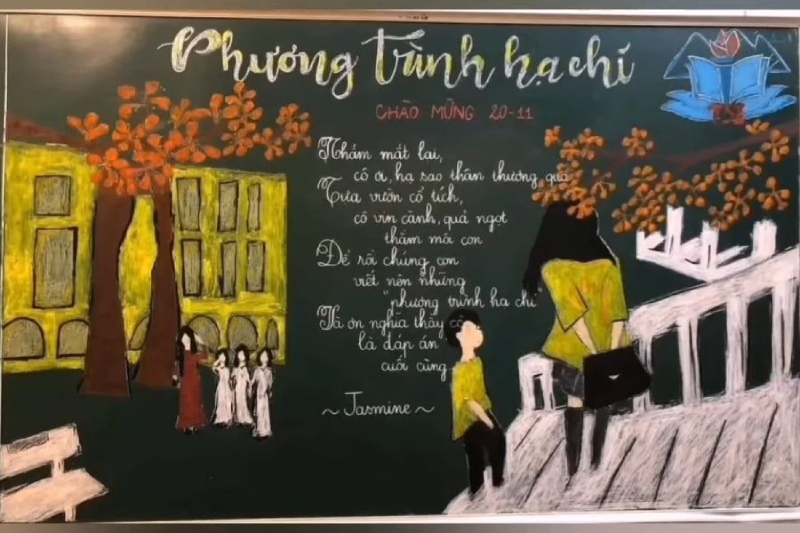 Phương trình hạ chí
CHÀO MỪNG 20-11
Nhắm mắt lại,
cô ơi, hạ sao thân thương quá
Tựa vườn cổ tích,
cô vin cành, quả ngọt
thắm môi con
Để rồi chúng con
viết nên những
"phương trình hạ chí"
Và ơn nghĩa thầy cô
là đáp án
cuối cùng
~ Jasmine ~